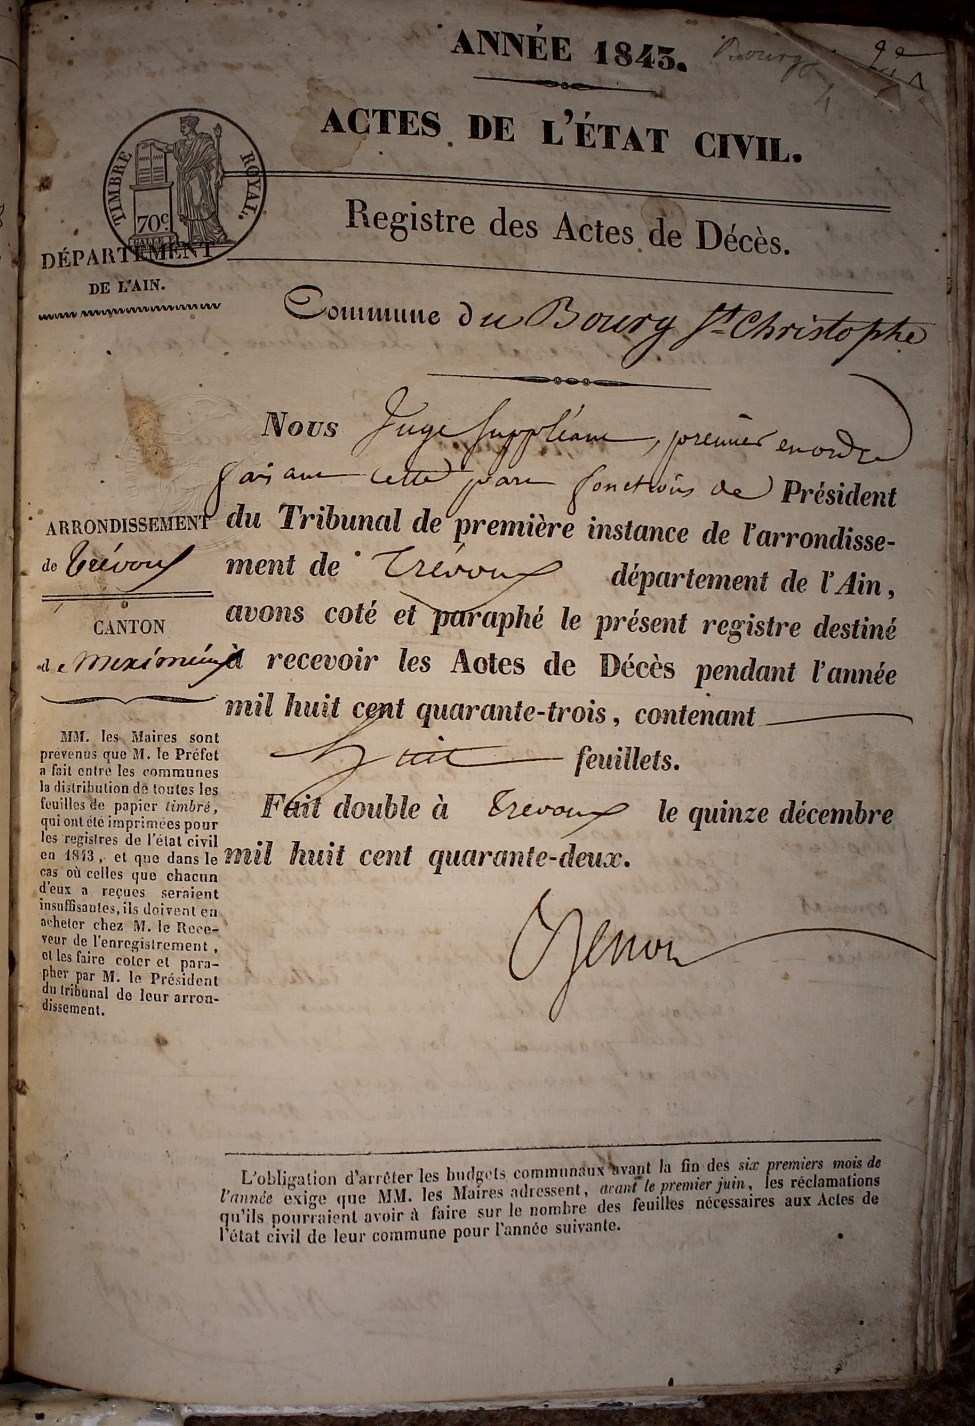 ANNÉE 1843.
ACTES DE L'ÉTAT CIVIL.
TIMBRE ROYAL.
70c
Registre des Actes de Décès.
DÉPARTEMENT
DE L'AIN.
Commune du Bourg St Christophe
Nous Juge suppléant, premier en ordre
faisant cette part fonctions de Président
du Tribunal de première instance de l'arrondisse-
ment de Trévoux département de l'Ain,
avons coté et paraphé le présent registre destiné
à recevoir les Actes de Décès pendant l'année
mil huit cent quarante-trois, contenant
huit feuillets.
Fait double à Trévoux le quinze décembre
mil huit cent quarante-deux.
ARRONDISSEMENT
de Trévoux
CANTON
de Meximieux
MM. les Maires sont
prévenus que M. le Préfet
a fait entre les communes
la distribution de toutes les
feuilles de papier timbré,
qui ont été imprimées pour
les registres de l'état civil
en 1843, et que dans le
cas où celles que chacun
d'eux a reçues seraient
insuffisantes, ils doivent en
acheter chez M. le Rece-
veur de l'enregistrement,
et les faire coter et para-
pher par M. le Président
du tribunal de leur arron-
dissement.
L'obligation d'arrêter les budgets communaux avant la fin des six premiers mois de
l'année exige que MM. les Maires adressent, avant le premier juin, les réclamations
qu'ils pourraient avoir à faire sur le nombre des feuilles nécessaires aux Actes de
l'état civil de leur commune pour l'année suivante.